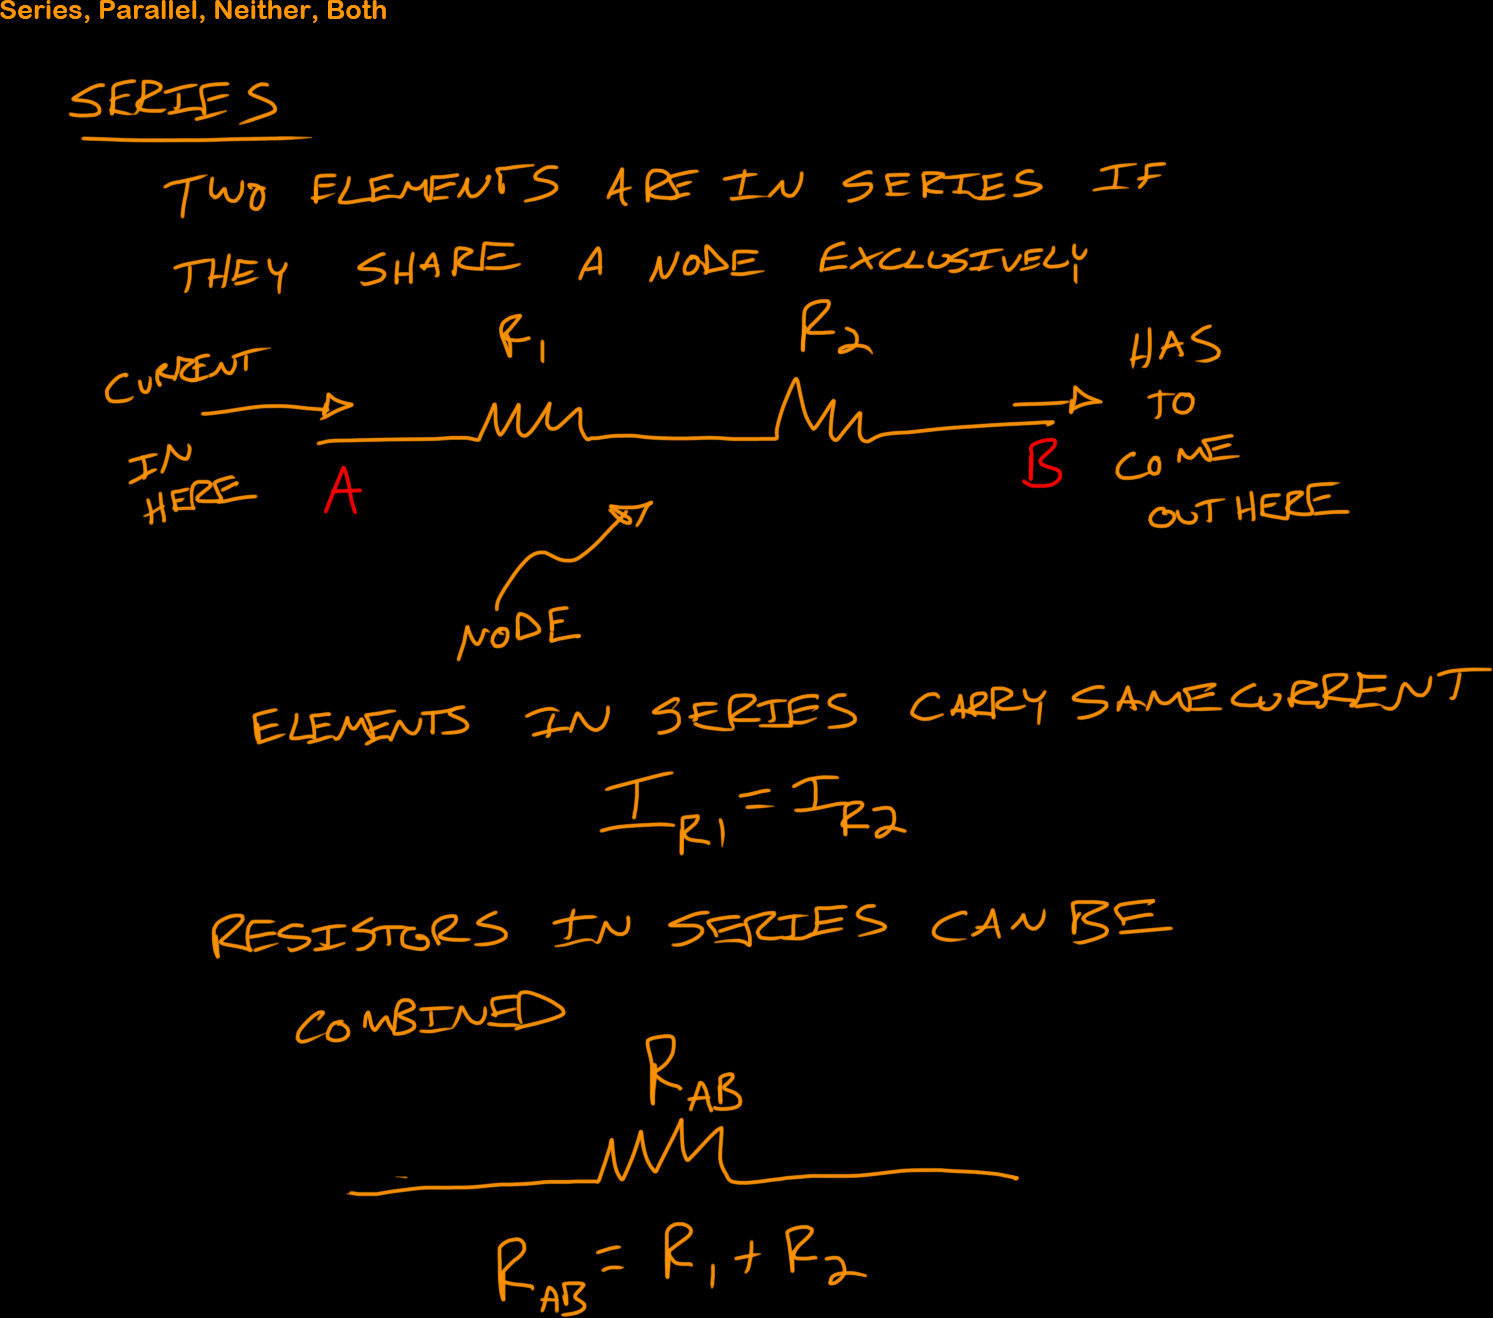 Series, Parallel, Neither, Both
SERIES
TWO ELEMENTS ARE IN SERIES IF
THEY SHARE A NODE EXCLUSIVELY
R1
R2
CURRENT
IN
HERE
A
B
HAS
TO
COME
OUT HERE
NODE
ELEMENTS IN SERIES CARRY SAME CURRENT
IR1 = IR2
RESISTORS IN SERIES CAN BE
COMBINED
RAB
RAB = R1 + R2